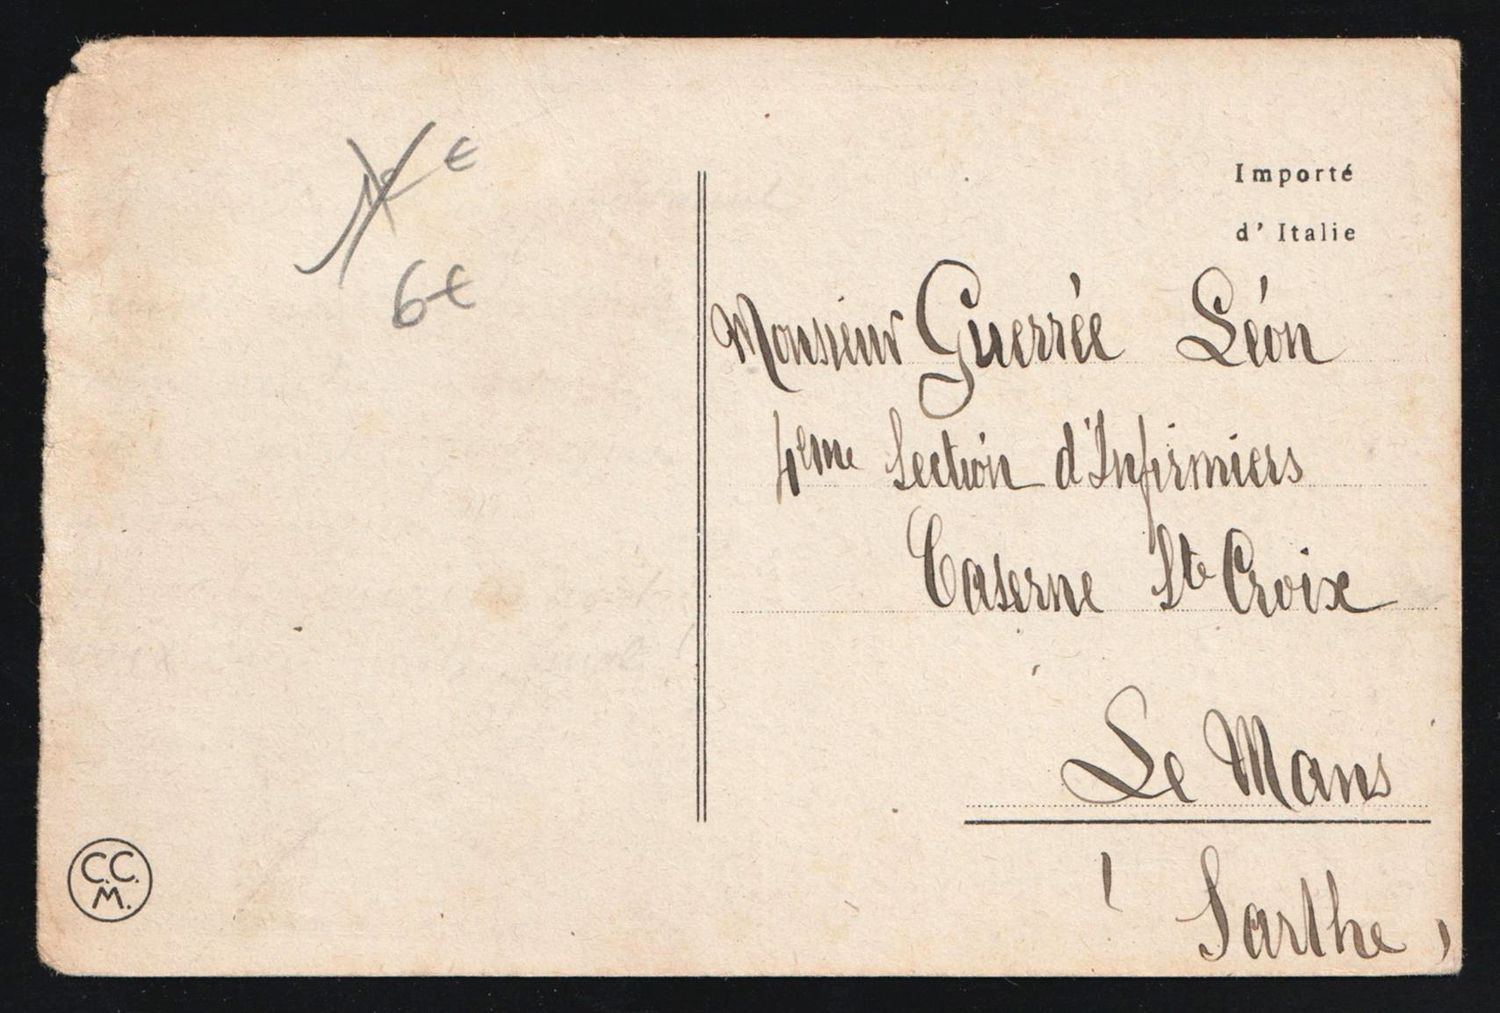 €
6€
Importé
d' Italie
Monsieur Guerrée Léon
4eme Section d'Infirmiers
Caserne Ste Croix
Le Mans
(Sarthe)
C.C.
M.